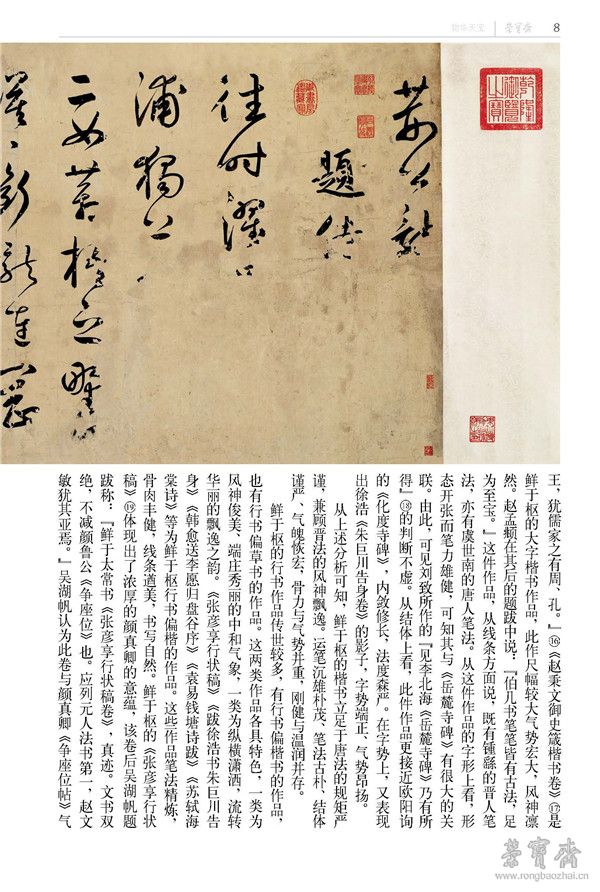 物华天宝 荣宝斋 8
乾隆
御览
之宝
题
往时
浦独
王，犹儒家之有周、孔。』⑯《赵秉文御史箴楷书卷》⑰是
鲜于枢的大字楷书作品，此作尺幅较大气势宏大，风神凛
然。赵孟頫在其后的题跋中说：『伯几书笔笔皆有古法，足
为至宝。』这件作品，从线条方面说，既有锺繇的晋人笔
法，亦有虞世南的唐人笔法。从这件作品的字形上看，形
态开张而笔力雄健，可知其与《岳麓寺碑》有很大的关
联。由此，可见刘致所作的『见李北海《岳麓寺碑》乃有所
得』⑱的判断不虚。从结体上看，此件作品更接近欧阳询
的《化度寺碑》，内敛修长，法度森严。在字势上，又表现
出徐浩《朱巨川告身卷》的影子，字势端正、气势昂扬。
从上述分析可知，鲜于枢的楷书立足于唐法的规矩严
谨，兼顾晋法的风神飘逸。运笔沉雄朴茂、笔法古朴、结体
谨严、气魄恢宏、骨力与气势并重，刚健与温润并存。
鲜于枢的行书作品传世较多，有行书偏楷书的作品，
也有行书偏草书的作品。这两类作品各具特色，一类为
风神俊美、端庄秀丽的中和气象，一类为纵横潇洒，流转
华丽的飘逸之韵。《张彦享行状稿》《跋徐浩书朱巨川告
身》《韩愈送李愿归盘谷序》《袁易钱塘诗跋》《苏轼海
棠诗》等为鲜于枢行书偏楷的作品。这些作品笔法精炼，
骨肉丰健，线条遒美，书写自然。鲜于枢的《张彦享行状
稿》⑲体现出了浓厚的颜真卿的意蕴，该卷后吴湖帆题
跋称：『鲜于太常书《张彦享行状稿卷》，真迹。文书双
绝，不减颜鲁公《争座位》也。应列元人法书第一，赵文
敏犹其亚焉。』吴湖帆认为此卷与颜真卿《争座位帖》气
荣宝斋
www.rongbaozhai.cn